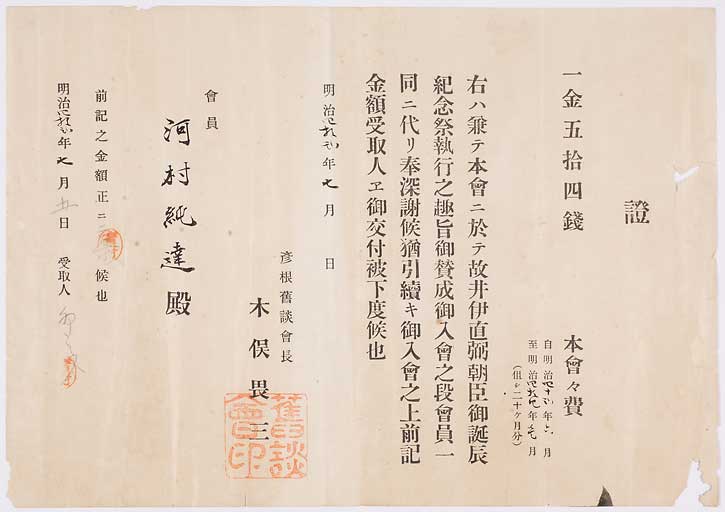 證
一金五拾四錢
本會々費
自明治四十 年六月
至明治四 年 月
(但シ二十ケ月分)
右ハ兼テ本會ニ於テ故井伊直弼朝臣御誕辰
紀念祭執行之趣旨御賛成御入會之段會員一
同ニ代リ奉深謝候猶引續キ御入會之上前記
金額受取人ヱ御交付被下度候也
明治 年七月 日
彦根舊談會長
木俣畏三
舊談會印
會員
河村純達殿
前記之金額正ニ 候也
明治 年七月 日 受取人